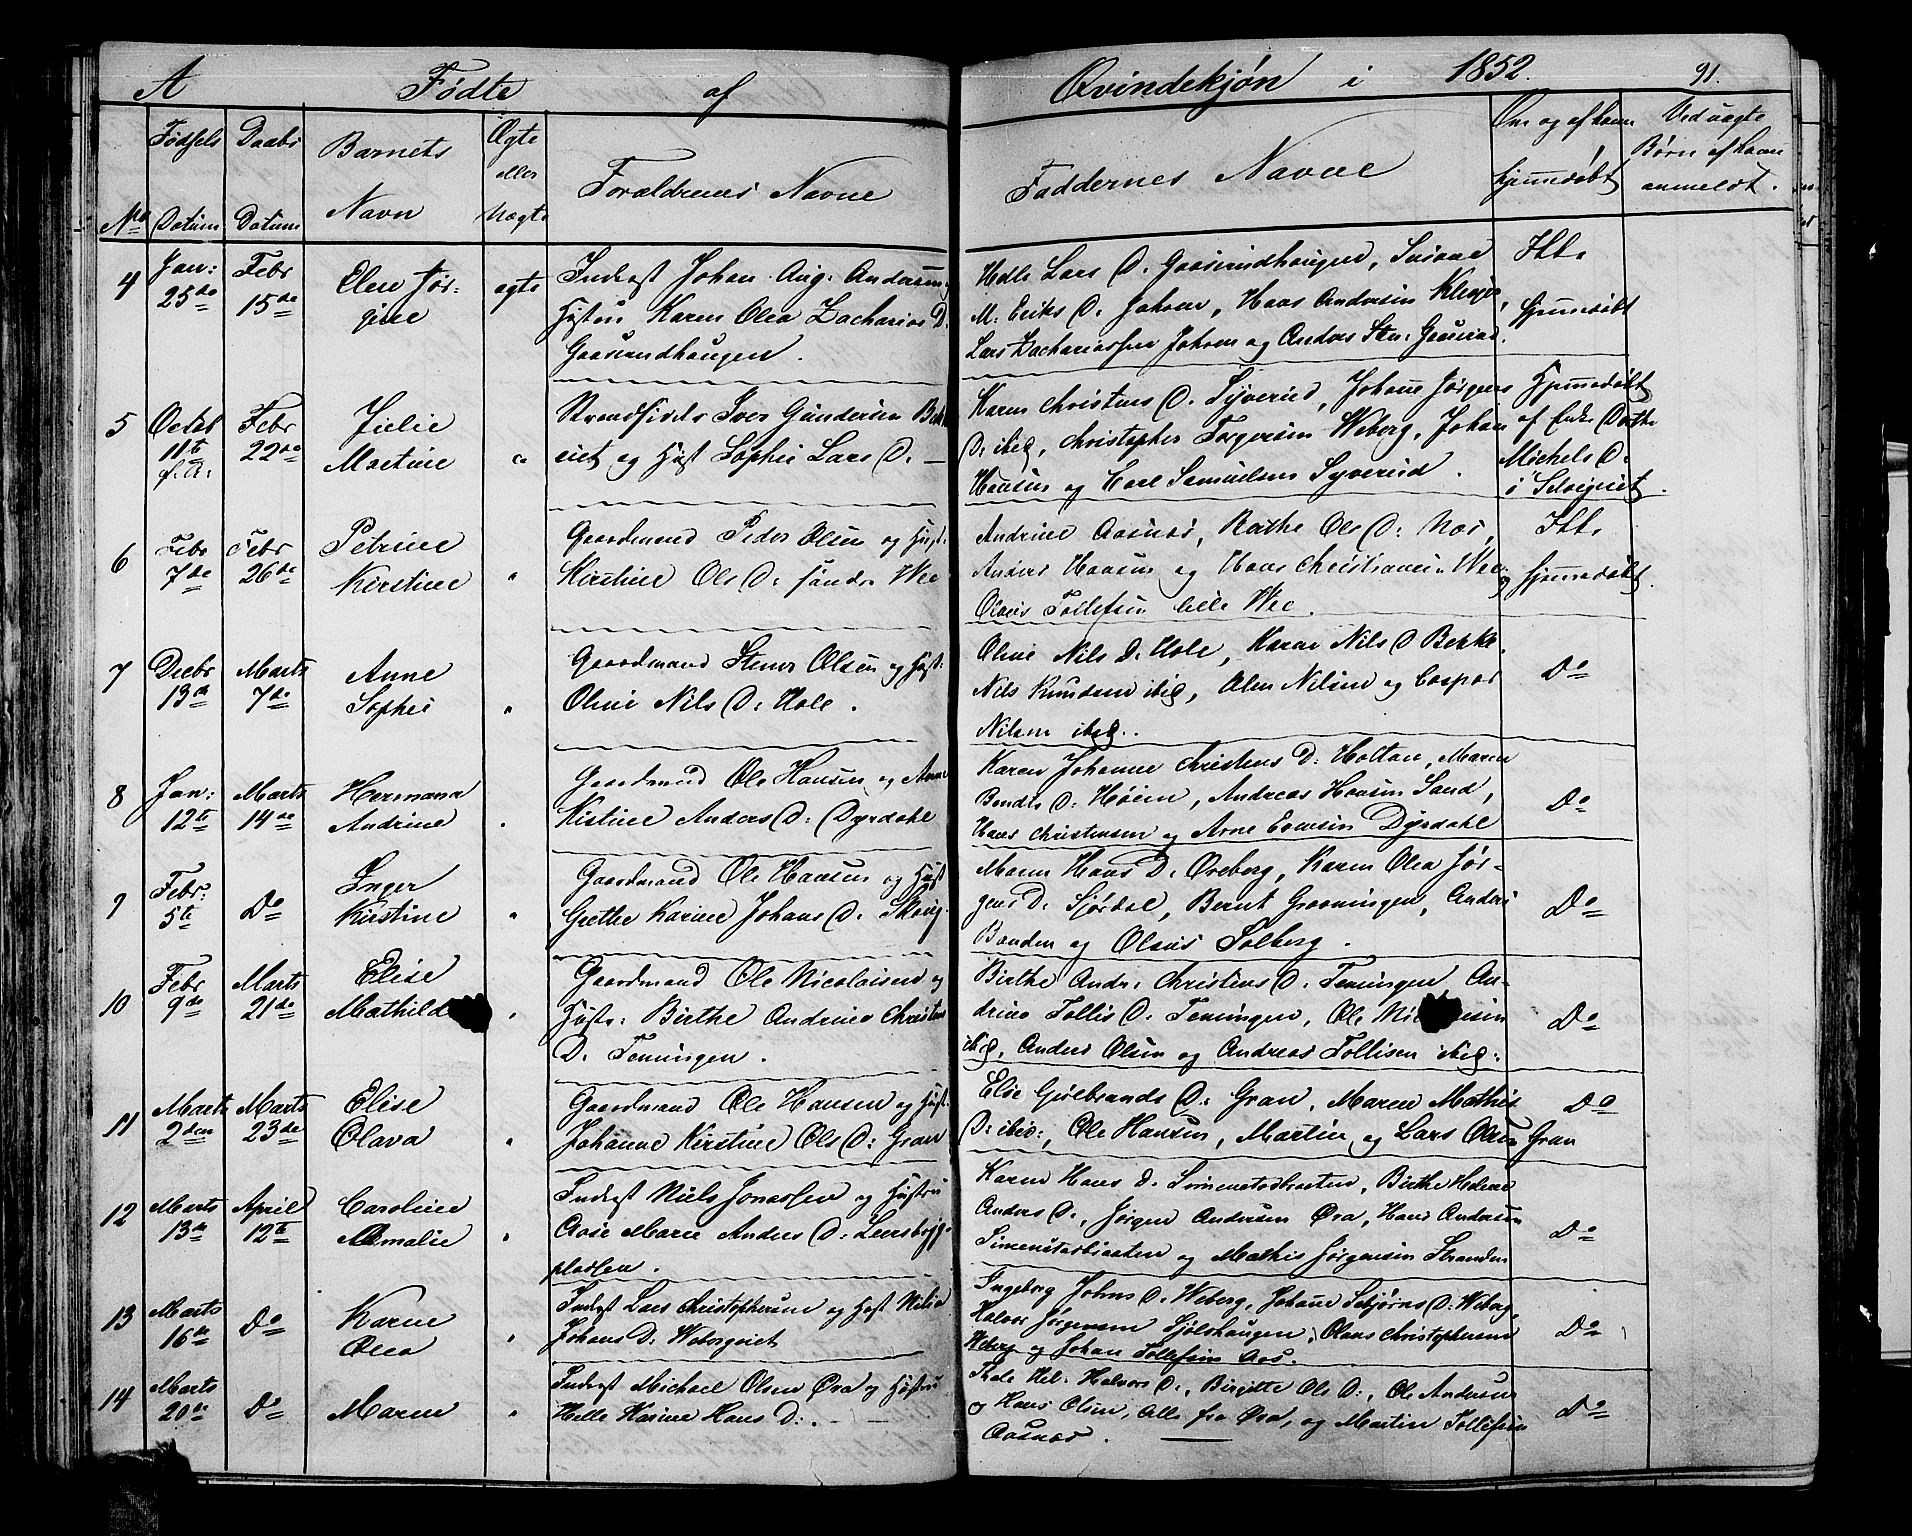 A Fødte af Qvindekjøn i 1852. 91.
No Fødsels Datum Daabs Datum Barnets Navn Ægte eller Uægte Forældrenes Navne Faddernes Navne Om og af hvem hjemmedøbt Ved uægte Børn af hvem anmeldt.
4 Jan: 25de Febr 15de Elen Jør-
gine ægte
Inderst Johan Aug. Andersen og
Hustru Karen Olea Zacharias D.
Gaaserudhaugen.
Helle Lars D. Gaaserudhaugen,
M. Eriks D. Johnsr, Hans Andersen
Lars Zachariassen Johnsr og Anders
Ikke
hjemmedøbt
5 Octbr 11te f. A: Febr 22de Julie
Martine "
Strandsidder Iver Gundersen
og Hust Sophie Lars D. —
Karen Christens D. Syverud, Johanne Jørgens
D. ibid, Christopher Torgersen Weberg, Johan
Hansen og Samuelsen Syverud.
Hjemmedøbt
af Enke Dorthe
Michels D.
i Selvigriet.
6 Febr 7de Febr 26de Petrine
Kirstine "
Gaardmand Peder Olsen og Hust:
Kirstine Ols D: søndre Wee
Andrine Aasnæs, Berthe Ols D: Næs,
Anders Hansen og Hans Christiansen Wee og
Olaus Tollefsen lille Wee.
Ikke
hjemmedøbt.
7 Decbr 13de Marts 7de Anne
Sophie "
Gaardmand Stener Olsen og Hust:
Oline Nils D: Hole.
Oline Nils D. Hole, Karen Nils D Bekke,
Nils Knudsen ibid, Olen Nilsen og Caspar
Nilsen ibid.
Do
8 Jan: 12te Marts 14de Hermana
Andrine "
Gaardmand Ole Hansen og Anne
Kistine Anders D: Dyrdahl
Karen Johanne Christens D: Holtan, Maren
Bendts D: Høien, Andreas Hansen Sand,
Hans Christensen og Arne Evensen Dyrdahl
Do
9 Febr: 5te Do Inger
Kirstine "
Gaardmand Ole Hansen og Hust
Grethe Karine Johans D:
Maren Hans D. Øreberg, Karen Olea Jør-
gens D. Sjørdal, Bernt Grønningen, Anders
Braaten og Olaus Solberg.
Do
10 Febr 9de Marts 21de Elise
Mathilde "
Gaardmand Ole Nicolaisen og
Hustr: Birthe Andrine Christens
D. Semingen.
Birthe Andr. Christens D. Semingen, An-
drine Tollefs D. Semingen, Ole
ibid, Anders Olsen og Andreas Tollefsen ibid:
Do
11 Marts 2den Marts 23de Elise
Olava "
Gaardmand Ole Hansen og Hust.
Johanne Kirstine Ols D: Gran
Else Gulbrands D: Gran, Maren Mathis
D: ibid:, Ole Hansen, Martin og Lars Olsen Gran
Do
12 Marts 13de April 12te Caroline
Amalie "
Inderst Niels Jonassen og Hustru
Aase Marie Anders D:
pladsen.
Karen Hans D. Simenstadbraaten, Birthe Helene
Anders D., Jørgen Andersen Øra, Hans Andersen
Simenstadbraaten og Mathis Jørgensen Stranden
Do
13 Marts 16de Do Karen
Olea "
Inderst Lars Christophersen og Hust
Johans D:
Ingeborg Johns D. Weberg, Johanne D: Weberg,
Halvor Jørgensen, Olaus Christophersen
Weberg og Johan Tollefsen Aas.
Do
14 Marts 20de Do Maren "
Inderst Michael Olsen Øra og Hustru
Helle Karine Hans D:.
Halvors D., Birgitte Ols D:, Ole Andersen
og Hans Olsen, alle fra Øra, og Martin Tollefsen
Aasnæs.
Do